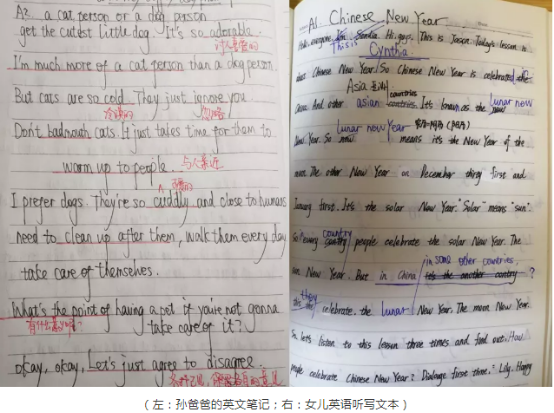 A2. a cat person or a dog person
get the cutest little dog. It's so adorable.
讨人喜爱的
I'm much more of a cat person than a dog person
But cats are so cold. They just ignore you
冷漠的 忽略
Don't badmouth cats. It just takes time for them to
warm up to people. 与人亲近
I prefer dogs. They're so cuddly and close to humans
need to clean up after them, walk them every day
take care of themselves.
What's the point of having a pet if you're not gonna
take care of it?
okay, okay, Let's just agree to disagree.
A1. Chinese New Year
everyone. Hi, guys. This is Jason Today's lesson is
This is
Cynthia
about Chinese New Year. So Chinese New Year is celebrated
Asia countries
China And other asian countries. It's known as the lunar new
Lunar new Year
New Year. So means it's the New Year of the
moon. The other New Year on December thirty first and
January first. It's the solar New Year. "Solar" means "sun".
country
So every country people celebrate the solar New Year. The
in some other countries.
New Year. But in China its the another contry ?
they
celebrate the lunar New Year. The moon New Year.
So lets listen to this lesson three times and find out How
people celebrate Chinese New Year? Dialogue first three. Lily. Happy
（左：孙爸爸的英文笔记；右：女儿英语听写文本）